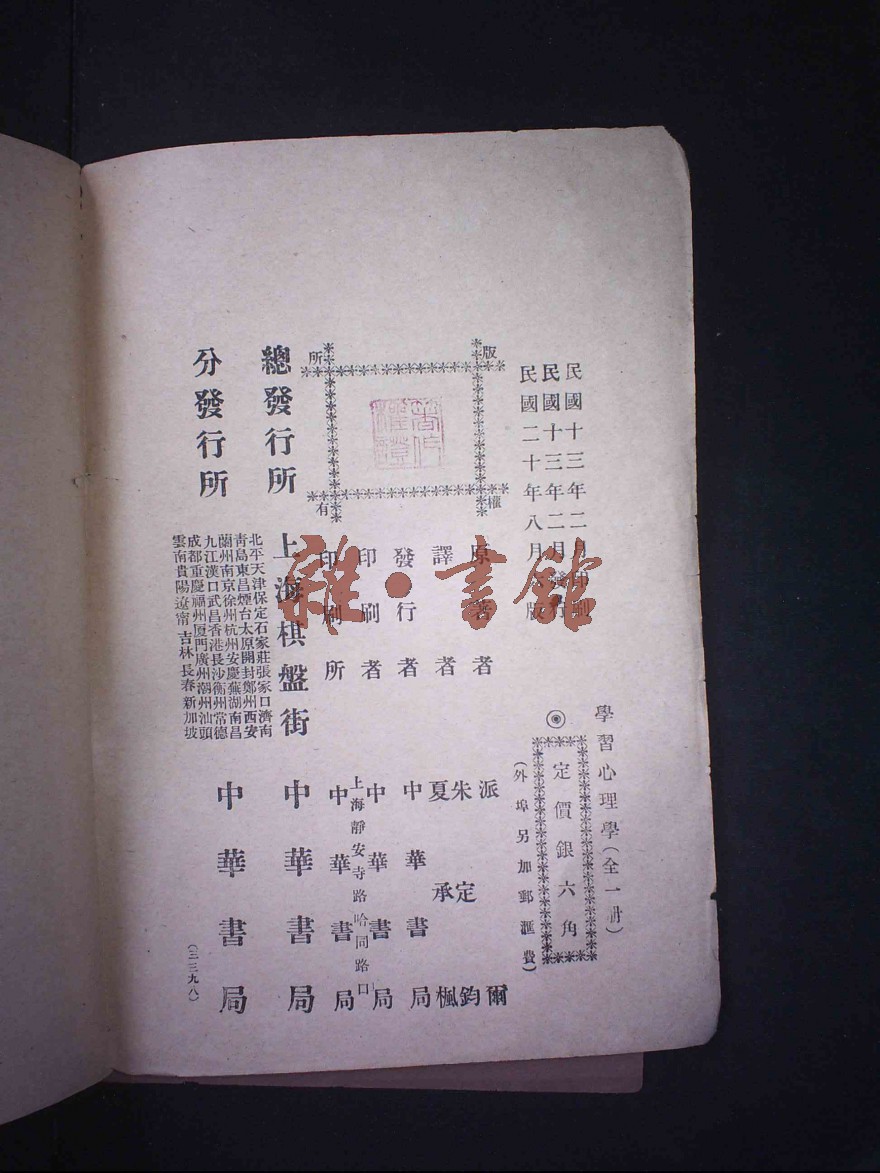 民國十三年二月印刷
民國十三年二月發行
民國二十年八月 版
學習心理學(全一册)
◎定價銀六角
(外埠另加郵滙費)
版權所有
原著者 派爾
譯者 朱定鈞 夏承楓
發行者 中華書局
印刷者 中華書局
印刷所 上海靜安寺路哈同路口 中華書局
總發行所 上海棋盤街 中華書局
分發行所
北平天津保定石家莊張家口濟南
青島東昌煙台太原開封鄭州西安
蘭州南京徐州杭州安慶蕪湖南昌
九江漢口武昌香港長沙衡州常德
成都重慶福州厦門廣州潮州汕頭
雲南貴陽遼甯吉林長春新加坡
中華書局
(三三九八)
雜·書館